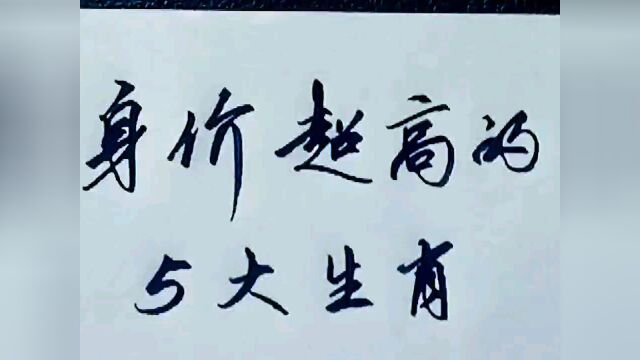 身价超高的
5大生肖